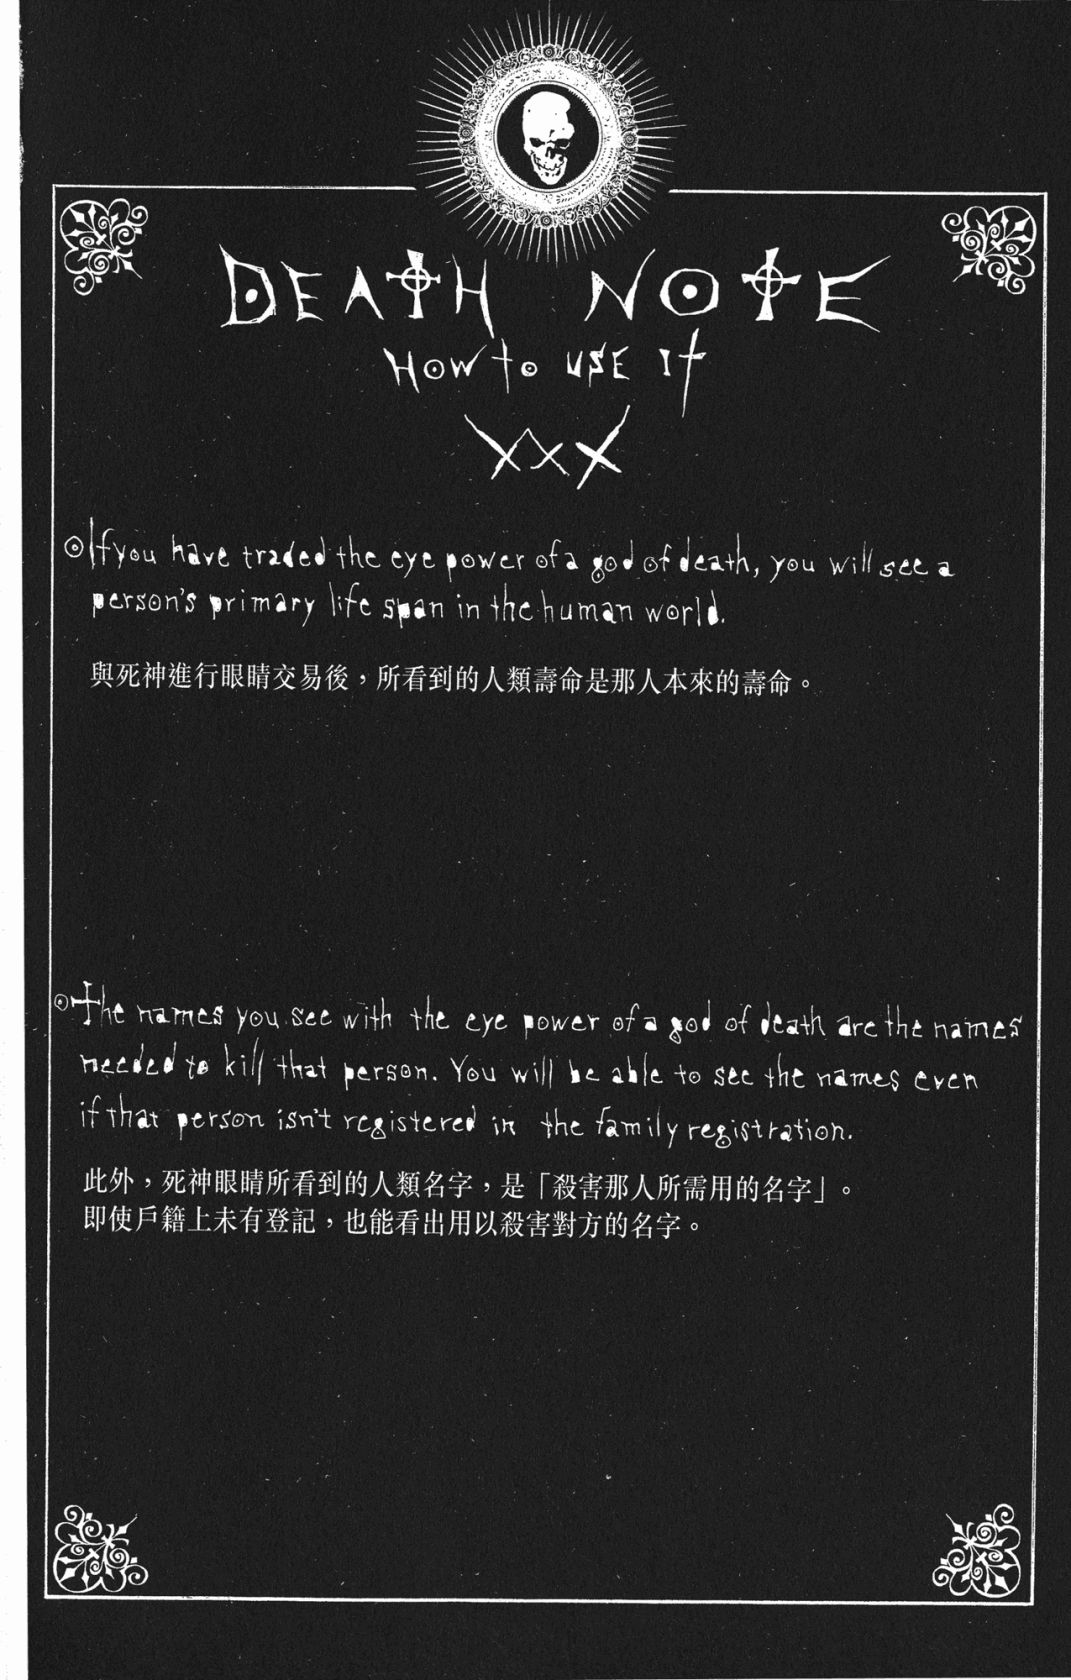 DEATH NOTE
HOW to USE It
XXX
If you have traded the eye power of a god of death, you will see a
person's primary life span in the human world.
與死神進行眼睛交易後，所看到的人類壽命是那人本來的壽命。
The names you see with the eye power of a god of death are the names
needed to kill that person. You will be able to see the names even
if that person isn't registered in the family registration.
此外，死神眼睛所看到的人類名字，是「殺害那人所需用的名字」。
即使戶籍上未有登記，也能看出用以殺害對方的名字。